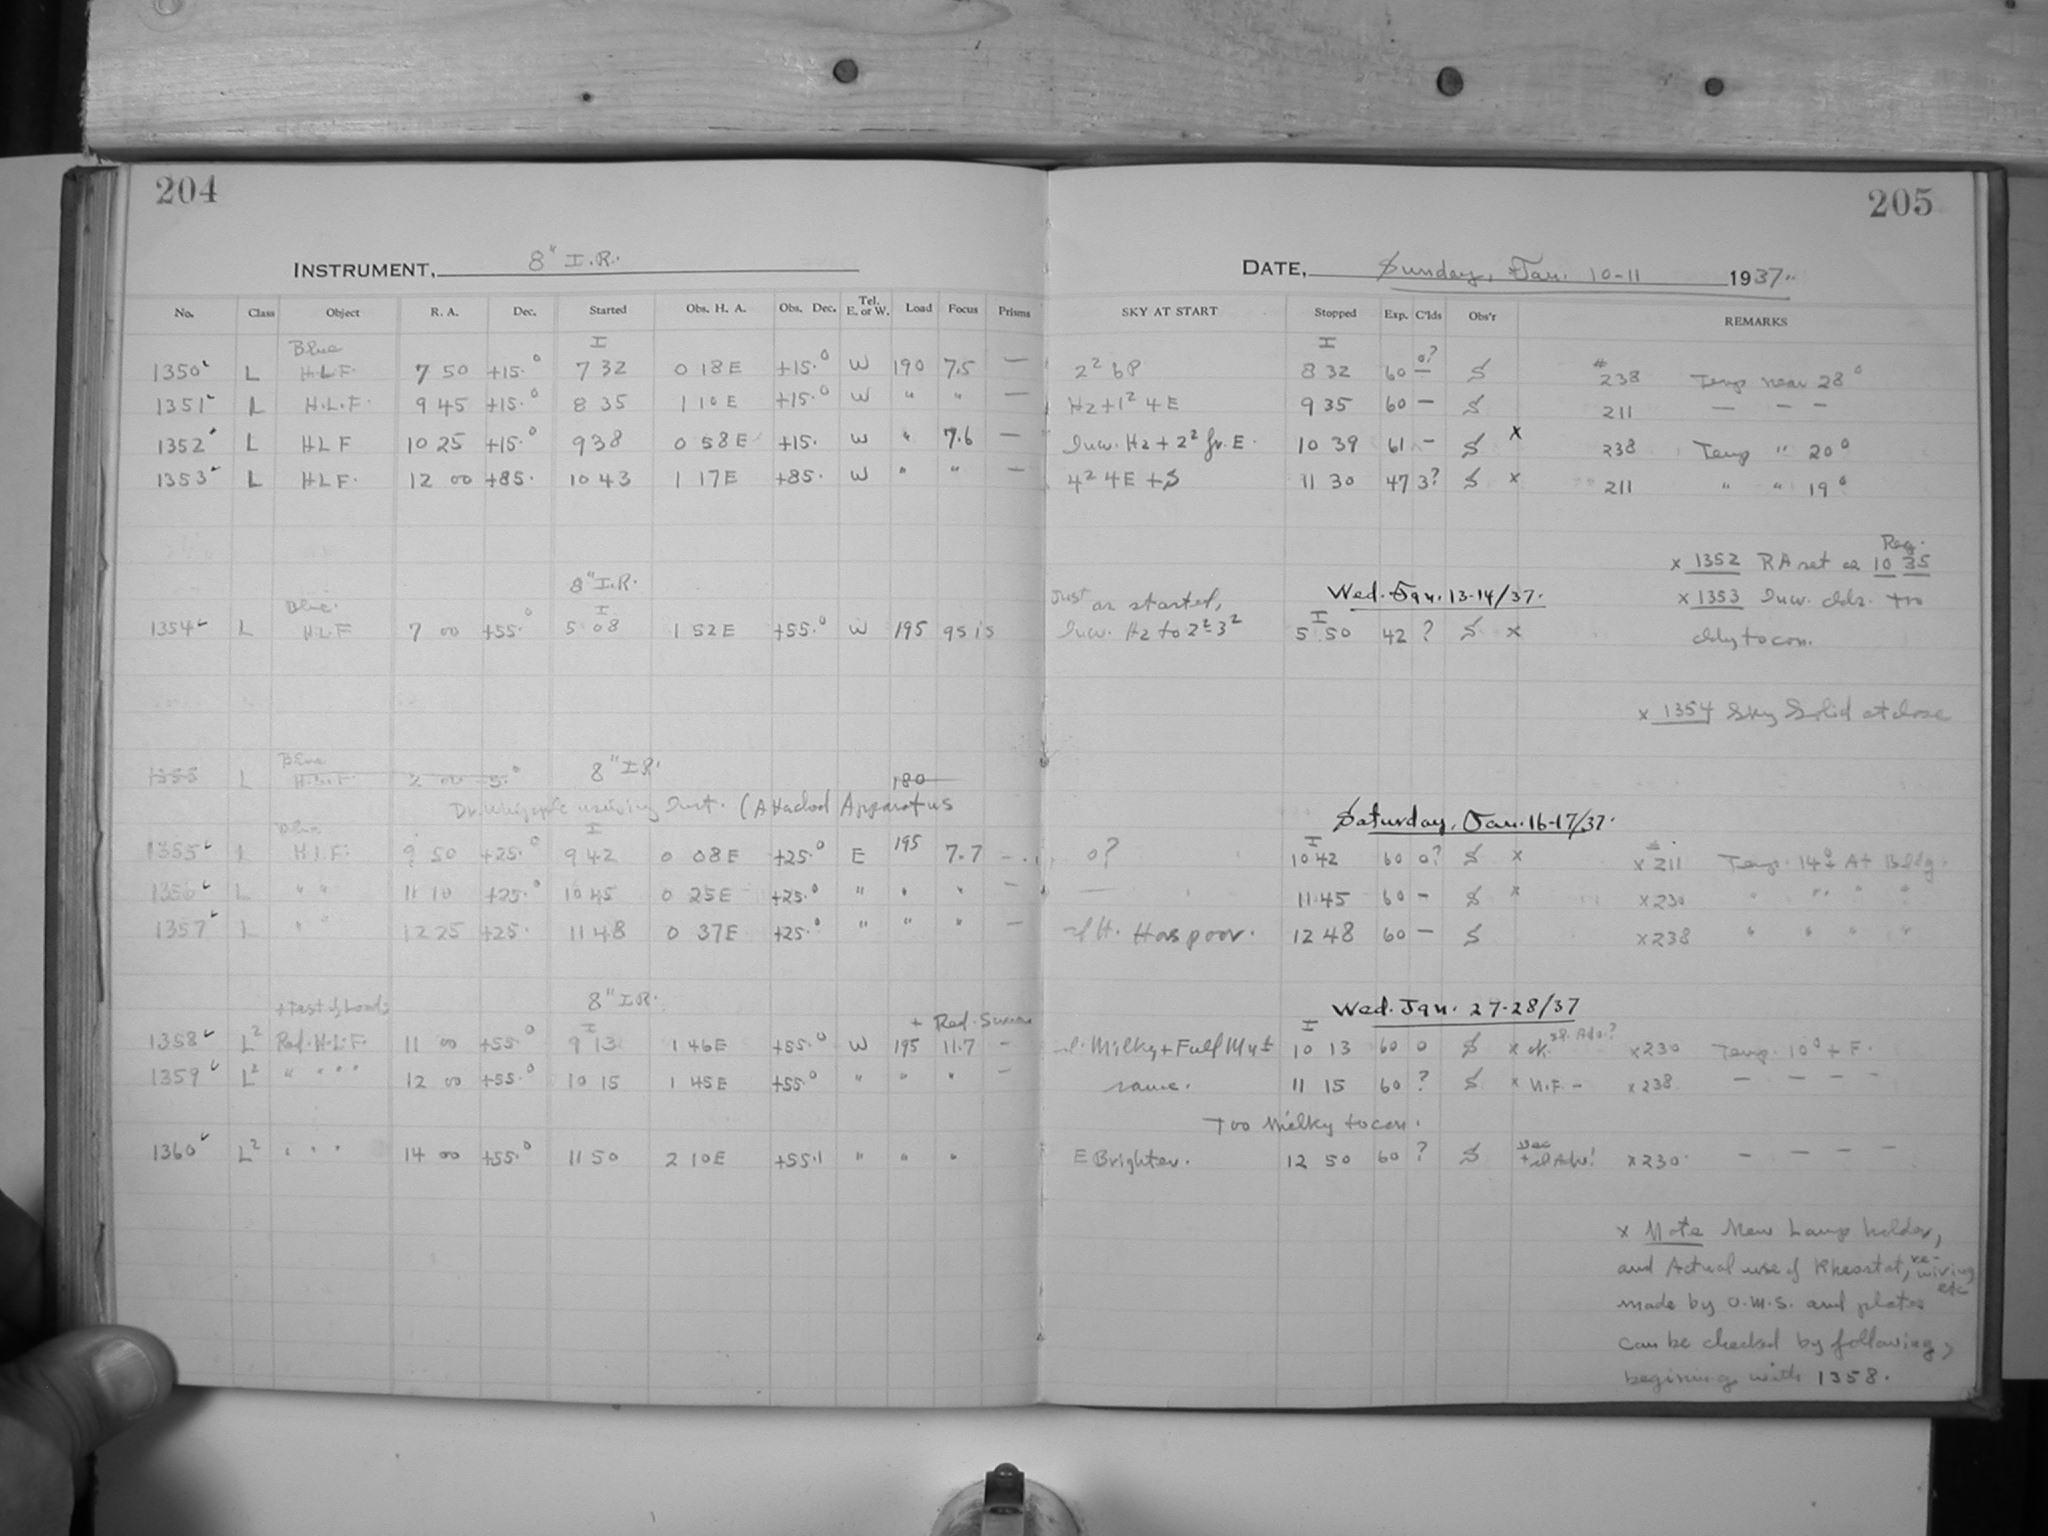 204
205
INSTRUMENT, 8" I.R.
DATE, Sunday, Jan. 10-11 1937
No. Class Object R. A. Dec. Started Obs. H. A. Obs. Dec. Tel. E. or W. Load Focus Prisms SKY AT START Stopped Exp. C'lds Obs'r REMARKS
Blue I I
1350 L H.L.F. 7 50 +15.° 7 32 0 18 E +15.° W 190 7.5 — 2² 6P 8 32 60 — 0? S # 238 Temp near 28°
1351 L H.L.F. 9 45 +15.° 8 35 1 10 E +15.° W " " — Hz+1² 4E 9 35 60 — S 211 — — —
1352 L HLF 10 25 +15.° 9 38 0 58 E +15. W " 7.6 — Hz + 2² fr. E. 10 39 61 — S x 238 Temp " 20°
1353 L HLF. 12 00 +85. 10 43 1 17 E +85. W " " — 4² 4E + S 11 30 47 3? S x 211 " " 19°
Reg.
x 1352 RA set as 10 35
8" I.R. Wed. Jan. 13-14/37.
x 1353
Blue. I Just as started, I
1354 L H.L.F 7 00 +55.° 5 08 1 52 E +55.° W 195 Hz to 2²-3² 5 50 42 ? S x
cldy to con.
x 1354 Sky Solid at close
Blue 8" I.R.
1355 L H.L.F. 2 00 -5.° 180
Inst. (Attached Apparatus
Saturday, Jan. 16-17/37.
Blue I I
1355 L H.L.F. 9 50 +25.° 9 42 0 08 E +25.° E 195 7.7 — 0? 10 42 60 0? S x # x 211 Temp. 14° ± At Bldg.
1356 L " " 11 10 +25.° 10 45 0 25 E +25.° " " " — — 11 45 60 — S x x 230 " " " "
1357 L " " 12 25 +25. 11 48 0 37 E +25.° " " " — sl H. Has poor. 12 48 60 — S x 238 " " " "
+ Test of Loads 8" I.R. Wed. Jan. 27-28/37
I + Red. Screen I
1358 L² Red. H.L.F. 11 00 +55.° 9 13 1 46 E +55.° W 195 11.7 — sl. Milky + Full 10 13 60 0 S x x 230 Temp. 10° + F.
1359 L² " " " " 12 00 +55.° 10 15 1 45 E +55.° " " " — same. 11 15 60 ? S x N.F. — x 238 — — — —
Too Milky to con.
1360 L² " " " 14 00 +55.° 11 50 2 10 E +55.1 " " " E Brighter. 12 50 60 ? S x 230 — — — —
x Note New Lamp holder,
and Actual use of Rheostat, re-wiring etc
made by O.M.S. and plates
can be checked by following,
begining with 1358.